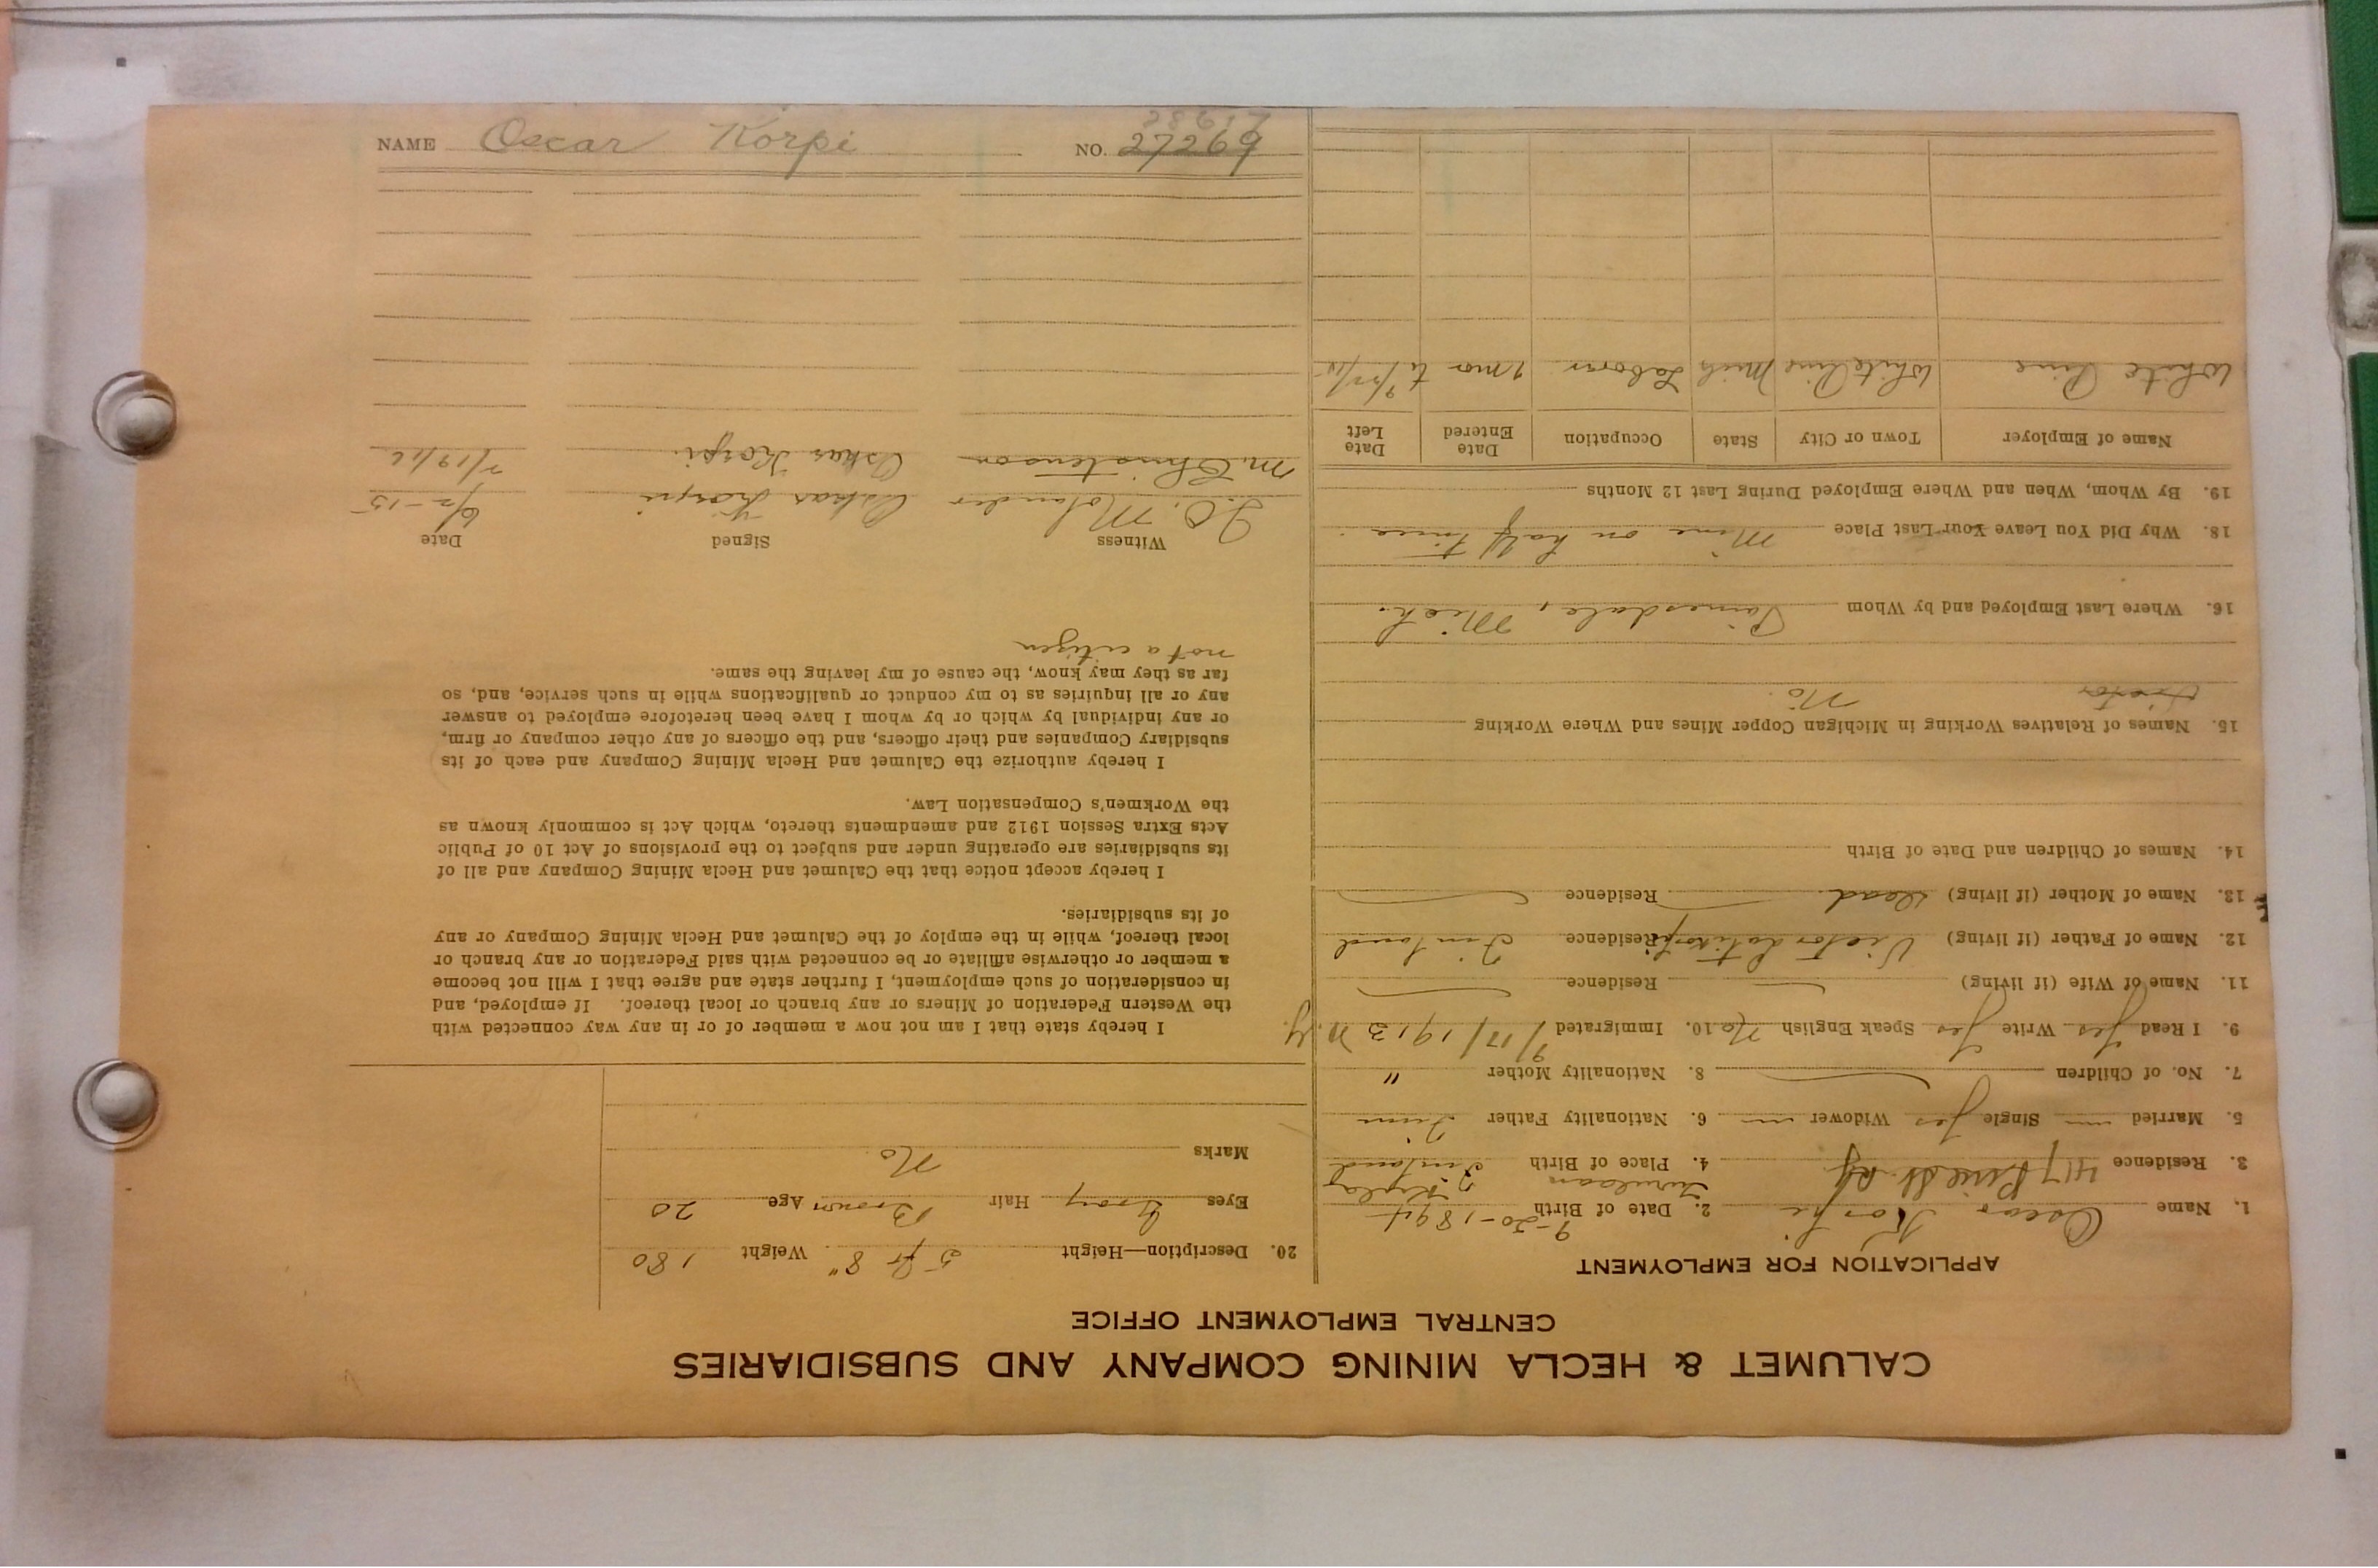 CALUMET & HECLA MINING COMPANY AND SUBSIDIARIES
CENTRAL EMPLOYMENT OFFICE
APPLICATION FOR EMPLOYMENT
1. Name Oscar Korpi 2. Date of Birth 9-20-1894
3. Residence 417 St. 4. Place of Birth Finland
5. Married — Single Yes Widower — 6. Nationality Father Finn
7. No. of Children 8. Nationality Mother "
9. I Read Yes Write Yes Speak English No 10. Immigrated 9/17/1913 N.Y.
11. Name of Wife (if living) — Residence
12. Name of Father (if living) Victor Residence Finland
13. Name of Mother (if living) Dead. Residence
14. Names of Children and Date of Birth
15. Names of Relatives Working in Michigan Copper Mines and Where Working
Victor No.
16. Where Last Employed and by Whom Painesdale, Mich.
18. Why Did You Leave Your Last Place Mine on half time.
19. By Whom, When and Where Employed During Last 12 Months
Name of Employer Town or City State Occupation Date Entered Date Left
White Pine White Pine Mich Laborer 1 mo
20. Description—Height 5 ft 8" Weight 180
Eyes Gray Hair Brown Age 20
Marks No
I hereby state that I am not now a member of or in any way connected with
the Western Federation of Miners or any branch or local thereof. If employed, and
in consideration of such employment, I further state and agree that I will not become
a member or otherwise affiliate or be connected with said Federation or any branch or
local thereof, while in the employ of the Calumet and Hecla Mining Company or any
of its subsidiaries.
I hereby accept notice that the Calumet and Hecla Mining Company and all of
its subsidiaries are operating under and subject to the provisions of Act 10 of Public
Acts Extra Session 1912 and amendments thereto, which Act is commonly known as
the Workmen's Compensation Law.
I hereby authorize the Calumet and Hecla Mining Company and each of its
subsidiary Companies and their officers, and the officers of any other company or firm,
or any individual by which or by whom I have been heretofore employed to answer
any or all inquiries as to my conduct or qualifications while in such service, and, so
far as they may know, the cause of my leaving the same.
not a citizen
Witness Signed Date
J.O. Molander Oskar Korpi 6/2-15
M. Christenson Oskar Korpi. 7/19/16
28617
NAME Oscar Korpi NO. 27269